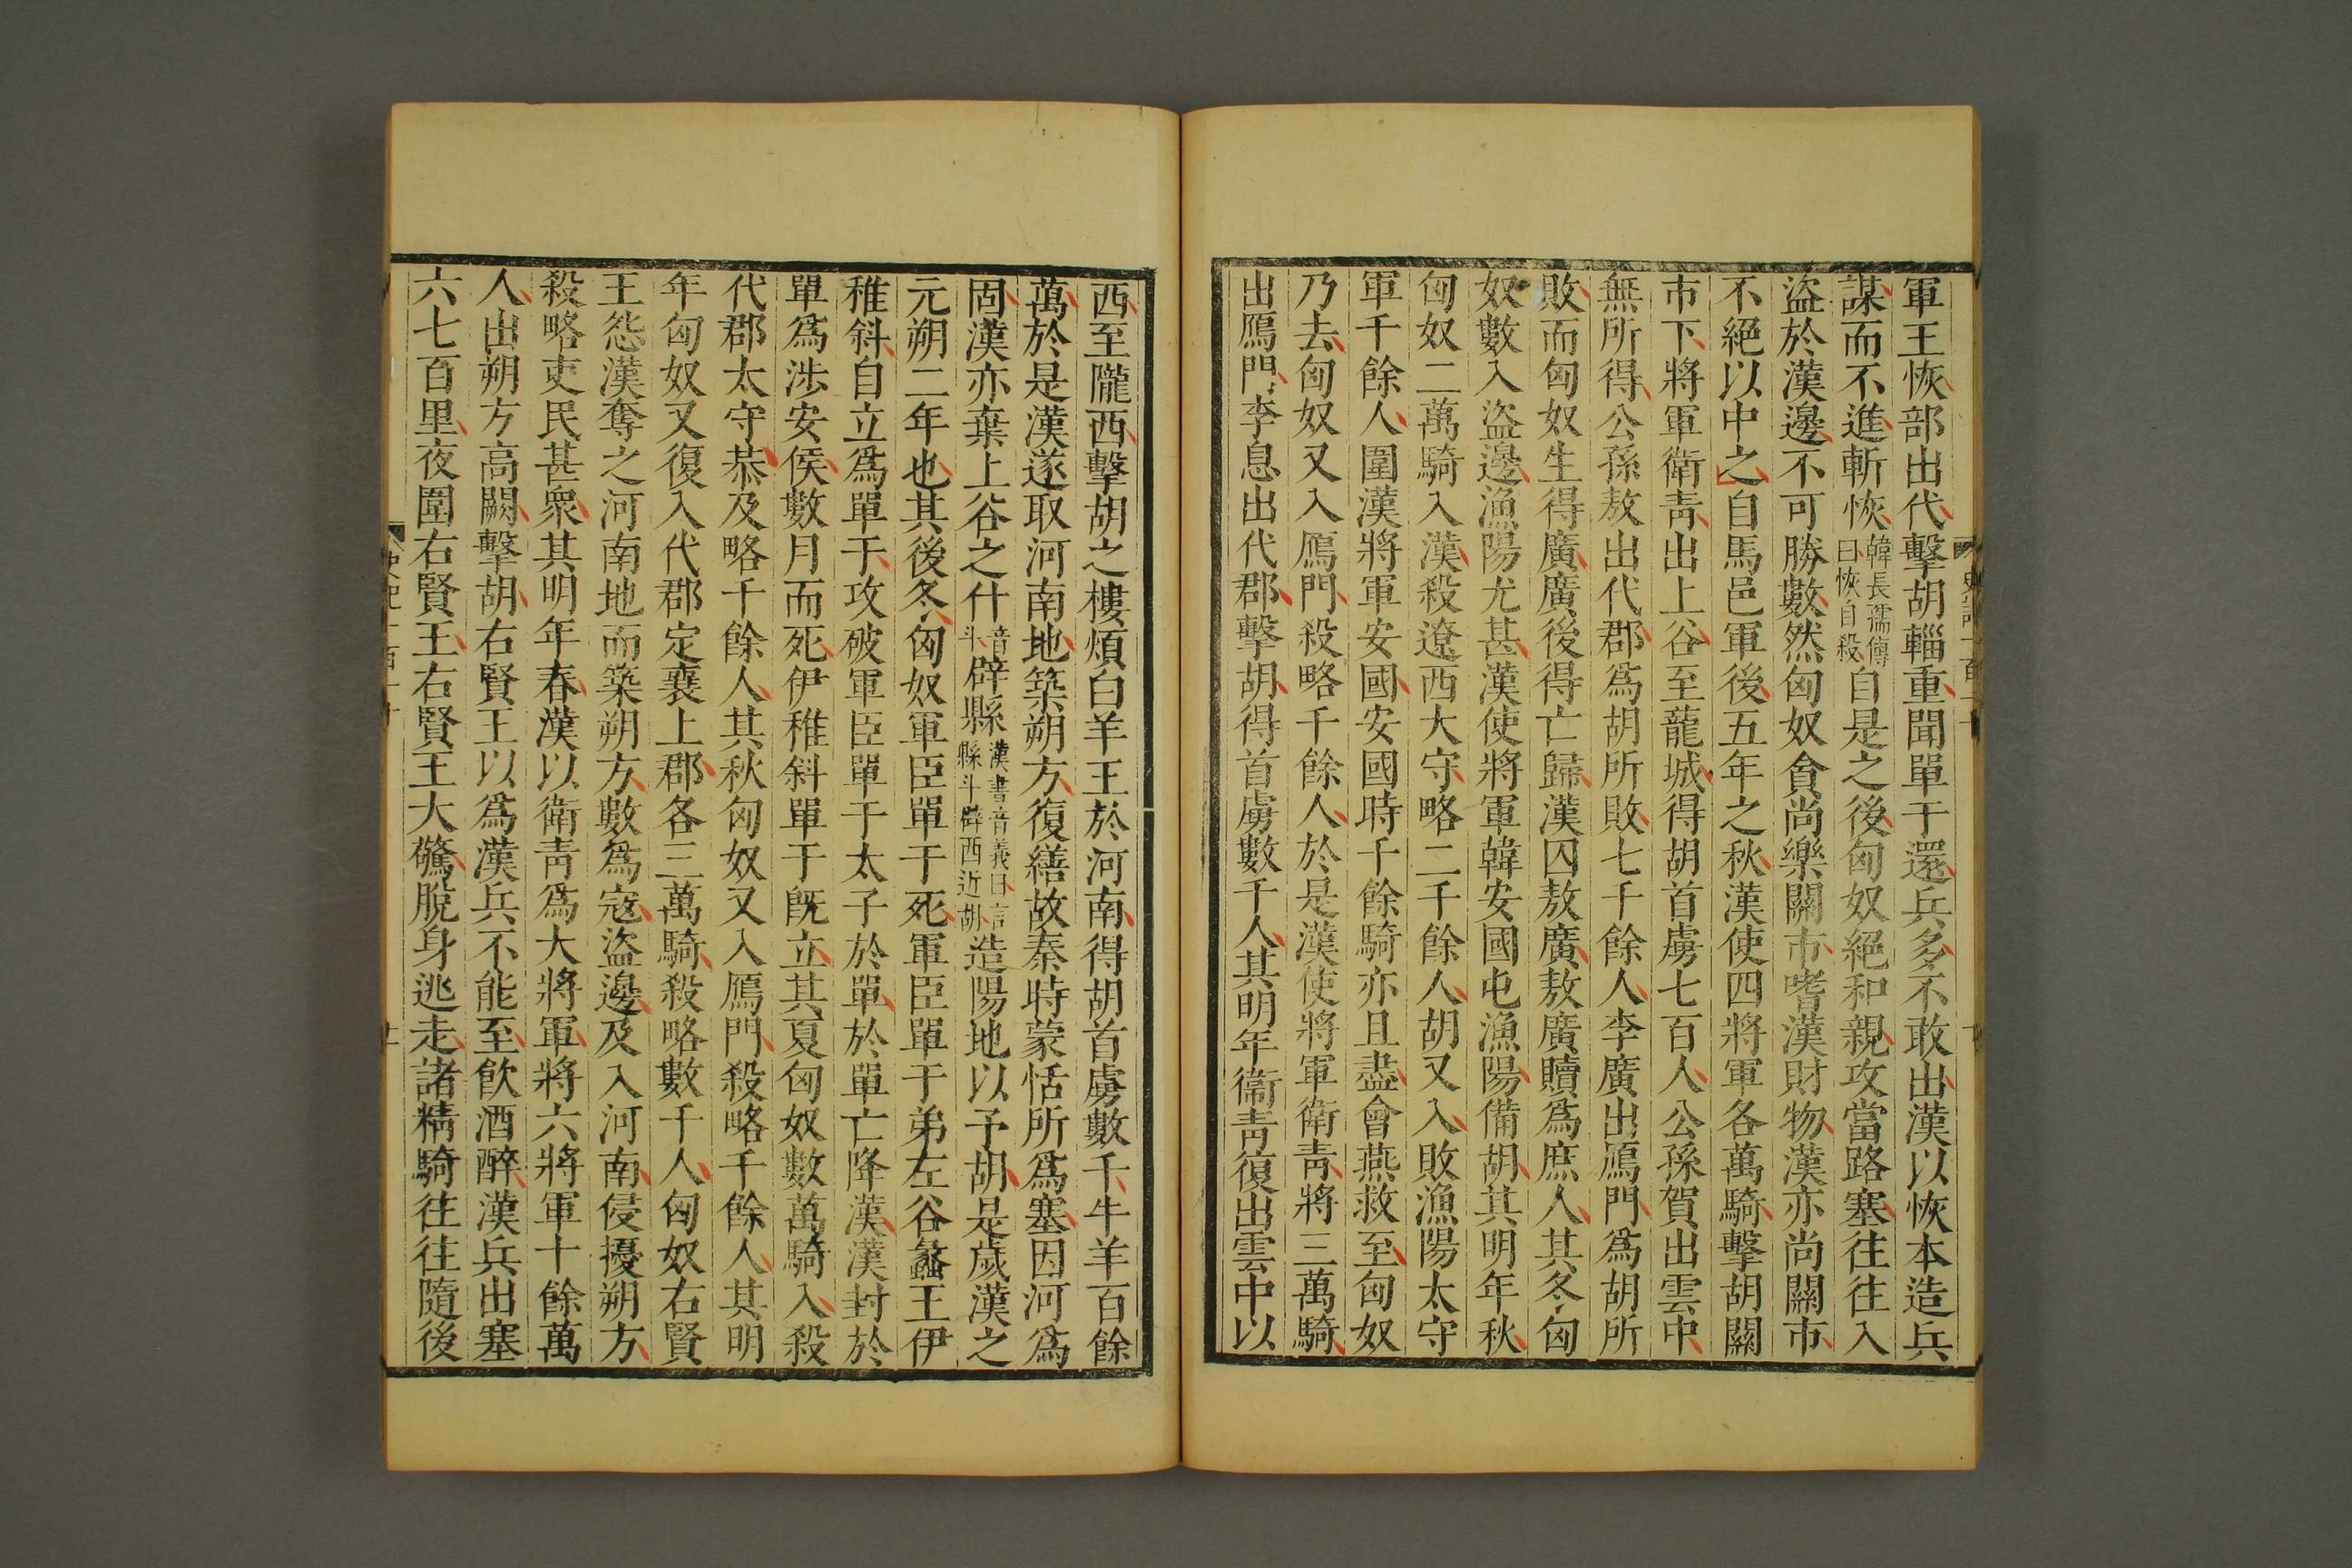 軍王恢部出代擊胡輜重聞單于還兵多不敢出漢以恢本造兵
謀而不進斬恢韓長孺傳曰恢自殺自是之後匈奴絕和親攻當路塞往往入
盜於漢邊不可勝數然匈奴貪尚樂關市嗜漢財物漢亦尚關市
不絕以中之自馬邑軍後五年之秋漢使四將軍各萬騎擊胡關
市下將軍衛青出上谷至蘢城得胡首虜七百人公孫賀出雲中
無所得公孫敖出代郡爲胡所敗七千餘人李廣出鴈門爲胡所
敗而匈奴生得廣廣後得亡歸漢囚敖廣敖廣贖爲庶人其冬匈
奴數入盜邊漁陽尤甚漢使將軍韓安國屯漁陽備胡其明年秋
匈奴二萬騎入漢殺遼西大守略二千餘人胡又入敗漁陽太守
軍千餘人圍漢將軍安國安國時千餘騎亦且盡會燕救至匈奴
乃去匈奴又入鴈門殺略千餘人於是漢使將軍衛青將三萬騎
出鴈門李息出代郡擊胡得首虜數千人其明年衞青復出雲中以
西至隴西擊胡之樓煩白羊王於河南得胡首虜數千牛羊百餘
萬於是漢遂取河南地築朔方復繕故秦時蒙恬所爲塞因河爲
固漢亦棄上谷之什音斗辟縣漢書音義曰言縣斗辟西近胡造陽地以予胡是歲漢之
元朔二年也其後冬匈奴軍臣單于死軍臣單于弟左谷蠡王伊
稚斜自立爲單于攻破軍臣單于太子於單於單亡降漢漢封於
單爲涉安侯數月而死伊稚斜單于旣立其夏匈奴數萬騎入殺
代郡太守恭及略千餘人其秋匈奴又入鴈門殺略千餘人其明
年匈奴又復入代郡定襄上郡各三萬騎殺略數千人匈奴右賢
王怨漢奪之河南地而築朔方數爲寇盜邊及入河南侵擾朔方
殺略吏民甚衆其明年春漢以衛青爲大將軍將六將軍十餘萬
人出朔方高闕擊胡右賢王以爲漢兵不能至飮酒醉漢兵出塞
六七百里夜圍右賢王右賢王大驚脫身逃走諸精騎往往隨後